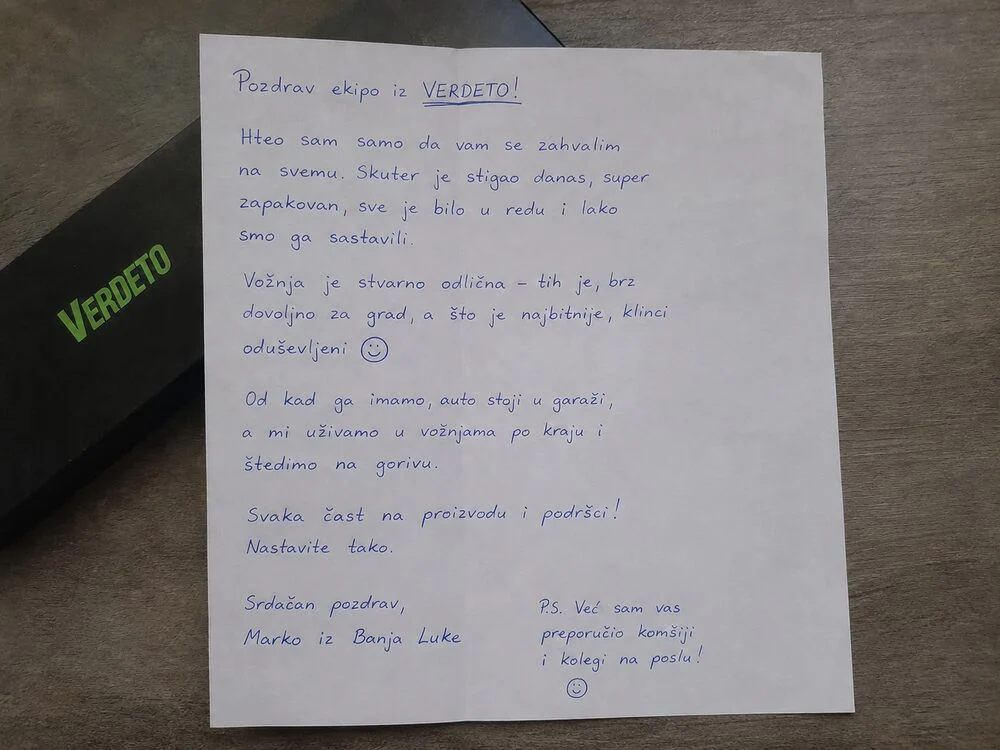 Pozdrav ekipo iz VERDETO!
Hteo sam samo da vam se zahvalim
na svemu. Skuter je stigao danas, super
zapakovan, sve je bilo u redu i lako
smo ga sastavili.
Vožnja je stvarno odlična – tih je, brz
dovoljno za grad, a što je najbitnije, klinci
oduševljeni ☺
Od kad ga imamo, auto stoji u garaži,
a mi uživamo u vožnjama po kraju i
štedimo na gorivu.
Svaka čast na proizvodu i podršci!
Nastavite tako.
Srdačan pozdrav,
Marko iz Banja Luke
P.S. Već sam vas
preporučio komšiji
i kolegi na poslu!
☺
VERDETO